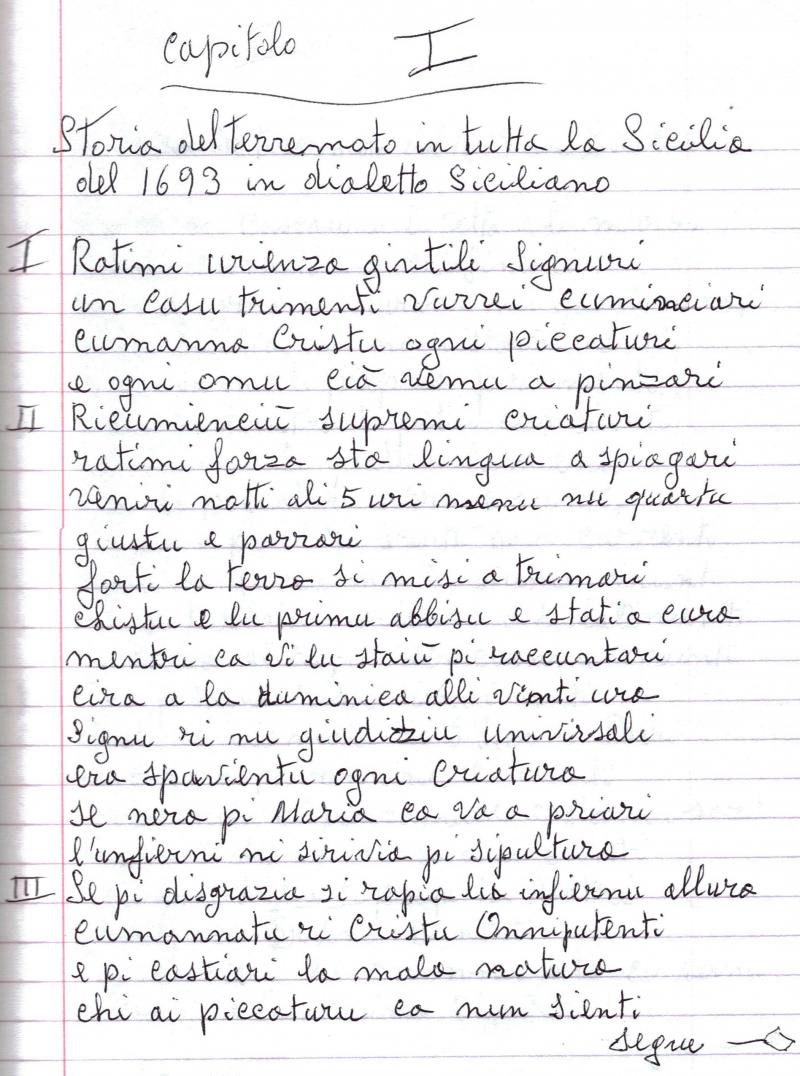 Capitolo I
Storia del terremoto in tutta la Sicilia
del 1693 in dialetto Siciliano
I Ratimi urienza gintili Signuri
un casu trimenti vurrei cuminciari
cumanna Cristu ogni piccaturi
e ogni omu cià vemu a pinzari
II Ricumienciù supremi criaturi
ratimi forza sta lingua a spiagari
veniri notti ali 5 uri menu nu quartu
giustu e parrari
forti la terra si misi a trimari
chistu e lu primu abbisu e stati a cura
mentri ca vi lu staiù pi raccuntari
cira a la duminica alli vinti ura
Signu ri nu giudiziu univirsali
era spavientu ogni criatura
se nera pi Maria ca va a priari
l'unfierni ni sirivia pi sipultura
III Se pi disgrazia si rapia lu infiernu allura
cumannatu ri Cristu Onniputenti
e pi castiari la mala natura
chi ai piccaturu ca nun sienti
segue